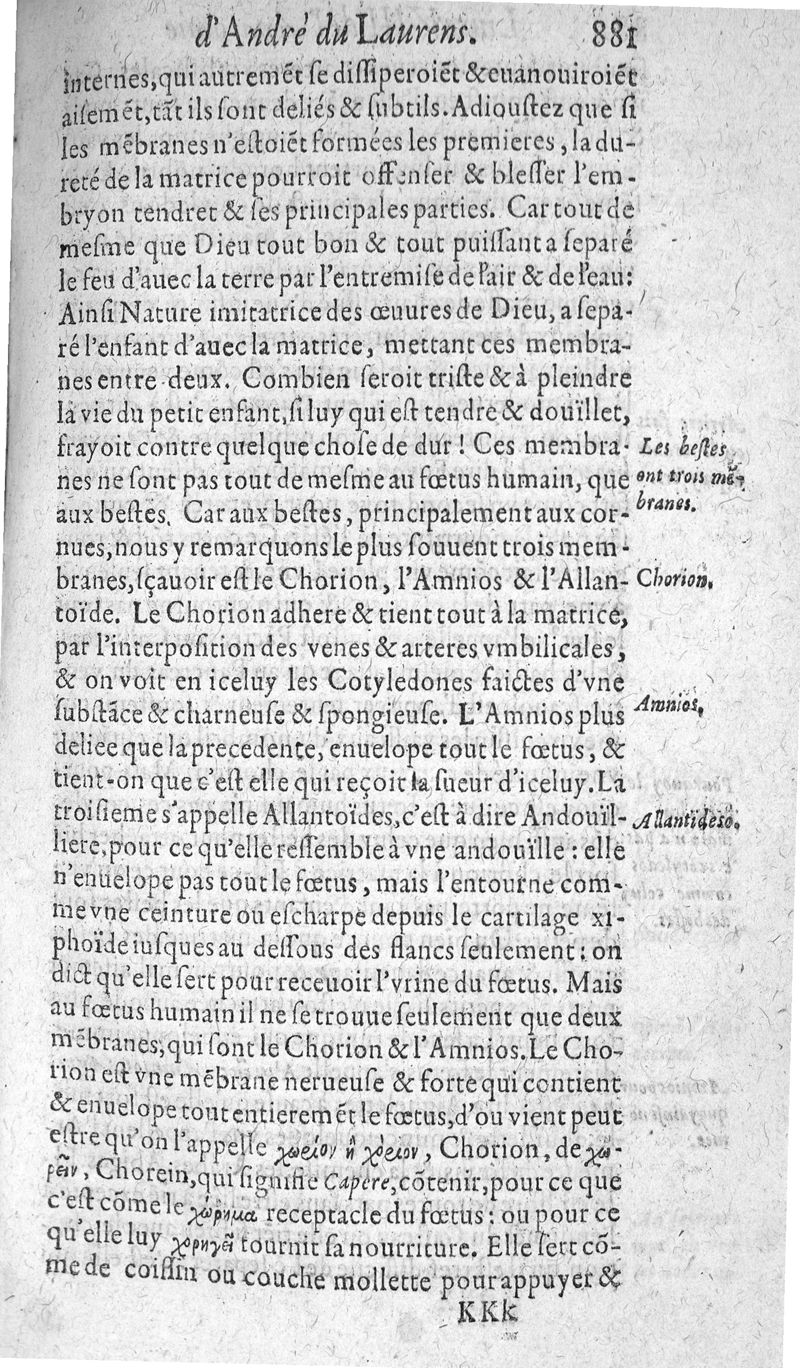 d'André du Laurens. 881
internes, qui autremẽt se dissiperoiẽt & euanouiroiẽt
aisemẽt, tãt ils sont deliés & subtils. Adioustez que si
les mẽbranes n'estoiẽt formées les premieres, la du-
reté de la matrice pourroit offenser & blesser l'em-
bryon tendret & ses principales parties. Car tout de
mesme que Dieu tout bon & tout puissant a separé
le feu d'auec la terre par l'entremise de l'air & de l'eau:
Ainsi Nature imitatrice des œuures de Dieu, a sepa-
ré l'enfant d'auec la matrice, mettant ces membra-
nes entre deux. Combien seroit triste & à pleindre
la vie du petit enfant, si luy qui est tendre & douïllet,
frayoit contre quelque chose de dur! Ces membra-
nes ne sont pas tout de mesme au fœtus humain, que
aux bestes. Car aux bestes, principalement aux cor-
nues, nous y remarquons le plus souuent trois mem-
branes, sçauoir est le Chorion, l'Amnios & l'Allan-
toïde. Le Chorion adhere & tient tout à la matrice,
par l'interposition des venes & arteres vmbilicales,
& on voit en iceluy les Cotyledones faictes d'vne
substãce & charneuse & spongieuse. L'Amnios plus
deliee que la precedente, enuelope tout le fœtus, &
tient-on que c'est elle qui reçoit la sueur d'iceluy. La
troisieme s'appelle Allantoïdes, c'est à dire Andouïl-
liere, pour ce qu'elle ressemble à vne andouïlle: elle
n'enuelope pas tout le fœtus, mais l'entourne com-
me vne ceinture ou escharpe depuis le cartilage xi-
phoïde iusques au dessous des flancs seulement: on
dict qu'elle sert pour receuoir l'vrine du fœtus. Mais
au fœtus humain il ne se trouue seulement que deux
mẽbranes, qui sont le Chorion & l'Amnios. Le Cho-
rion est vne mẽbrane nerueuse & forte qui contient
& enuelope tout entieremẽt le fœtus, d'ou vient peut
estre qu'on l'appelle χωρίον ἢ χόριον, Chorion, de χω-
ρεῖν, Chorein, qui signifie Capere, cõtenir, pour ce que
c'est cõme le χώρημα receptacle du fœtus: ou pour ce
qu'elle luy χορηγεῖ fournit sa nourriture. Elle sert cõ-
me de coissin ou couche mollette pour appuyer &
KKk
Les bestes
ont trois mẽ-
branes.
Chorion.
Amnios.
Allantïdeso.